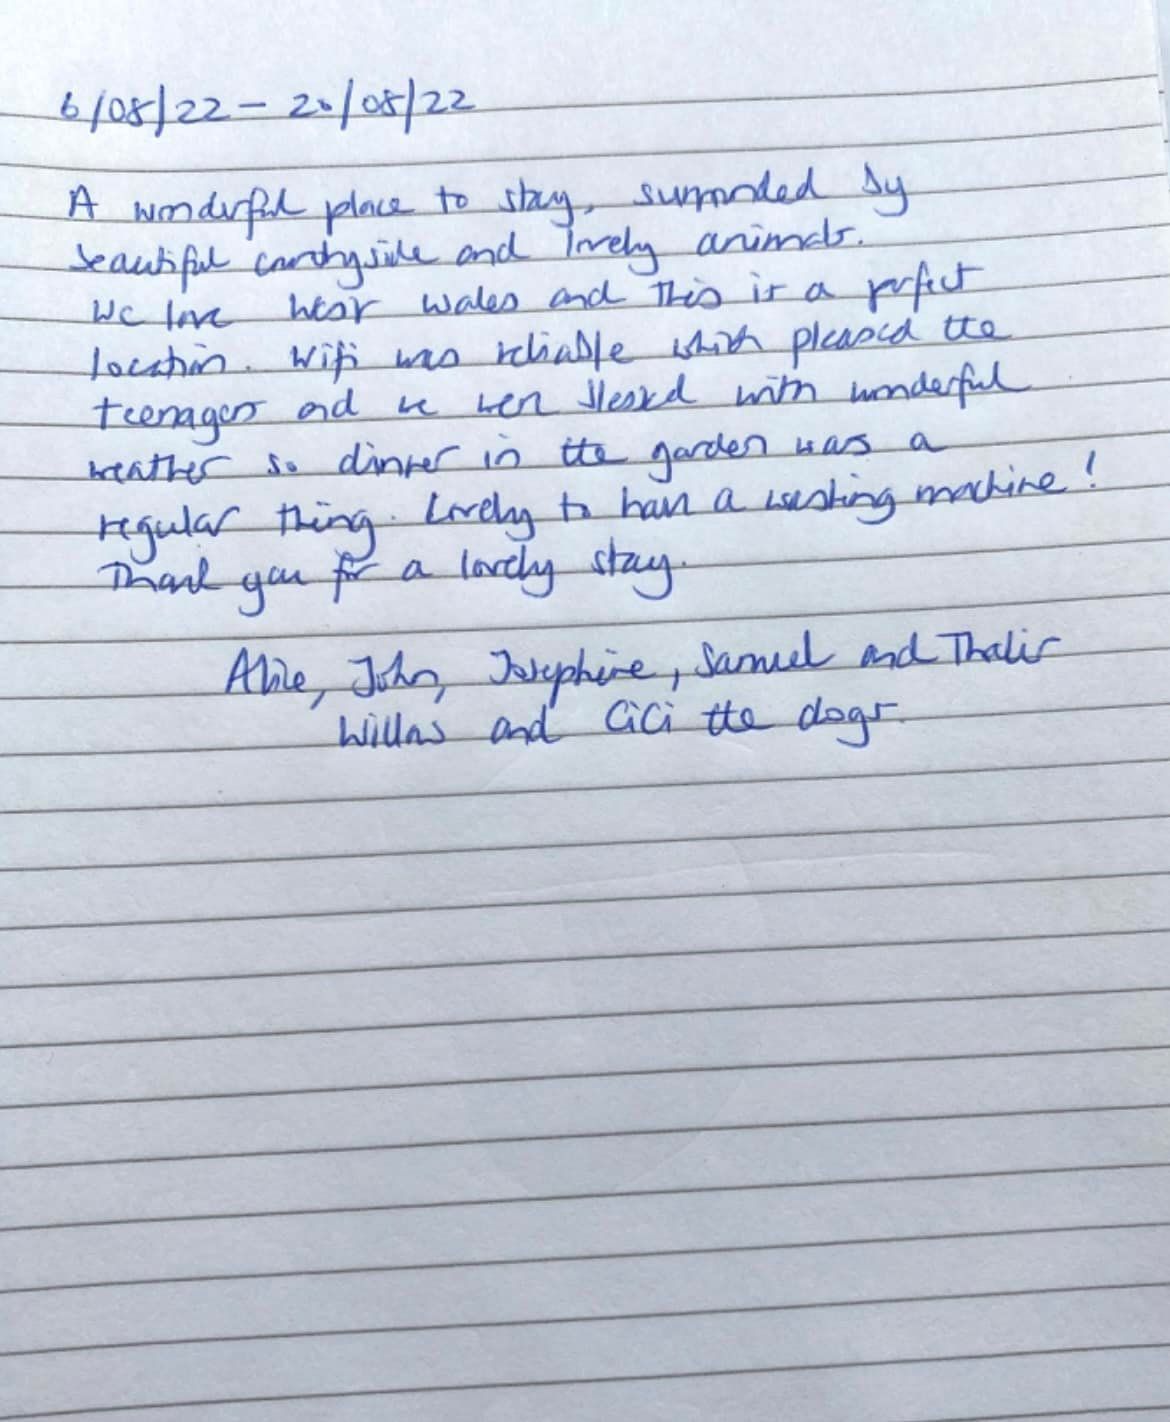 6/08/22 - 20/08/22
A wonderful place to stay, surrounded by
beautiful countryside and lovely animals.
We love West Wales and this is a perfect
location. Wifi was reliable which pleased the
teenagers and we were blessed with wonderful
weather so dinner in the garden was a
regular thing. Lovely to have a washing machine!
Thank you for a lovely stay.
Alice, John, Josephine, Samuel and Thalia
and CiCi the dogs.